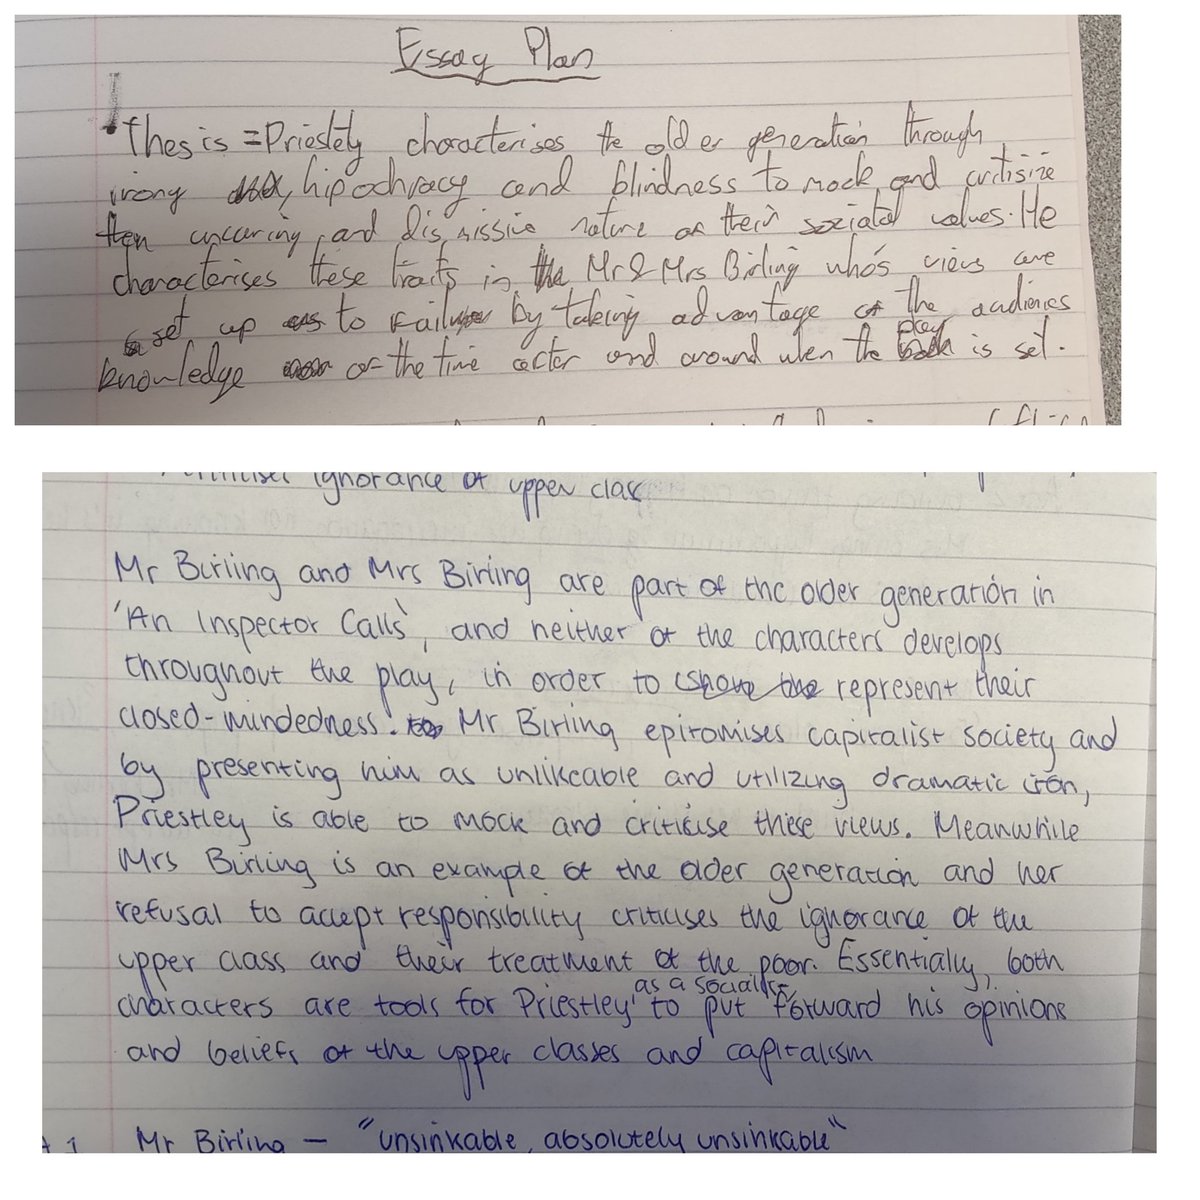 Essay Plan
Thesis = Priestely characterises the older generation through
irony , hipochracy and blindness to mock and critisize
ther uncuring, and dismissive nature of their sociatal values. He
characterises these traits in the Mr & Mrs Birling who's views are
set up to Fail by taking advantage of the audiences
knowledge of the time after and around when the play is set.
ignorance of upper class
Mr Birling and Mrs Birling are part of the older generation in
'An Inspector Calls', and neither of the characters develops
throughout the play, in order to represent their
closed-mindedness. Mr Birling epitomises capitalist society and
by presenting him as unlikeable and utilizing dramatic iron,
Priestley is able to mock and criticise these views. Meanwhile
Mrs Birling is an example of the older generation and her
refusal to accept responsibility criticises the ignorance of the
upper class and their treatment of the poor. Essentially, both
as a socialist,
characters are tools for Priestley to put forward his opinions
and beliefs of the upper classes and capitalism
1 Mr Birling - "unsinkable, absolutely unsinkable"